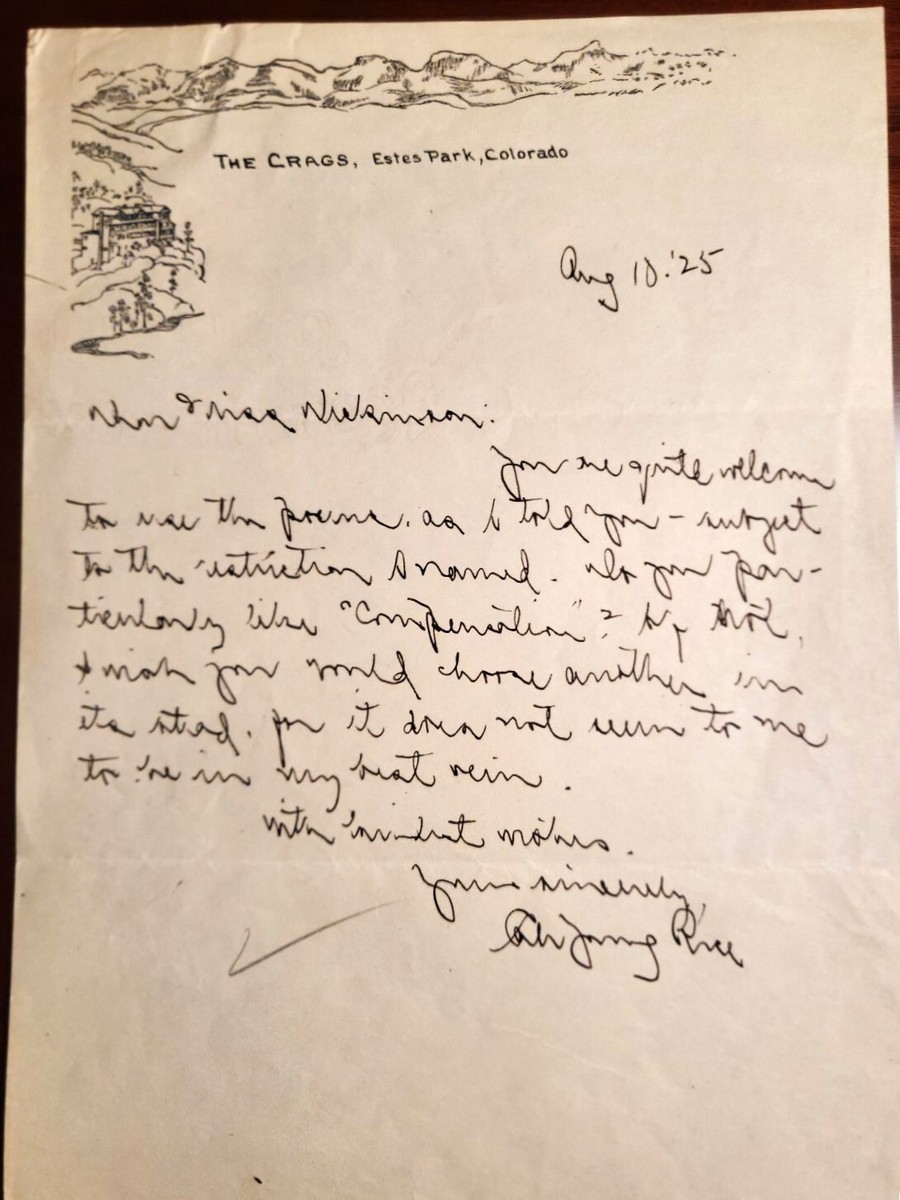 THE CRAGS, Estes Park, Colorado
Aug 10. '25
Dear Miss Dickinson:
You are quite welcome
to use the poems, as I told you – subject
to the restriction I named. Do you par-
ticularly like "Compensation"? If not,
I wish you would choose another in
its stead, for it does not seem to me
to be in my best vein.
With kindest wishes.
Yours sincerely,
Cale Young Rice